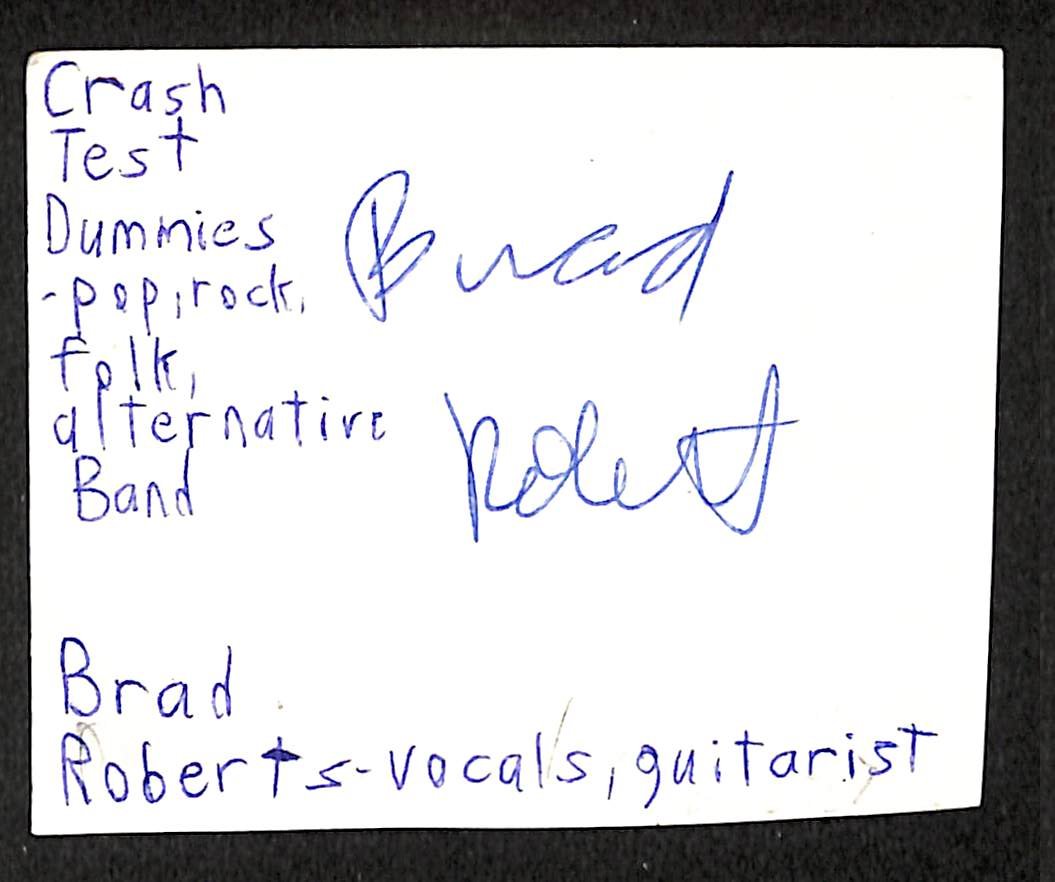 Crash
Test
Dummies
-pop, rock,
folk,
alternative
Band
Brad
Robert
Brad
Roberts-vocals, guitarist